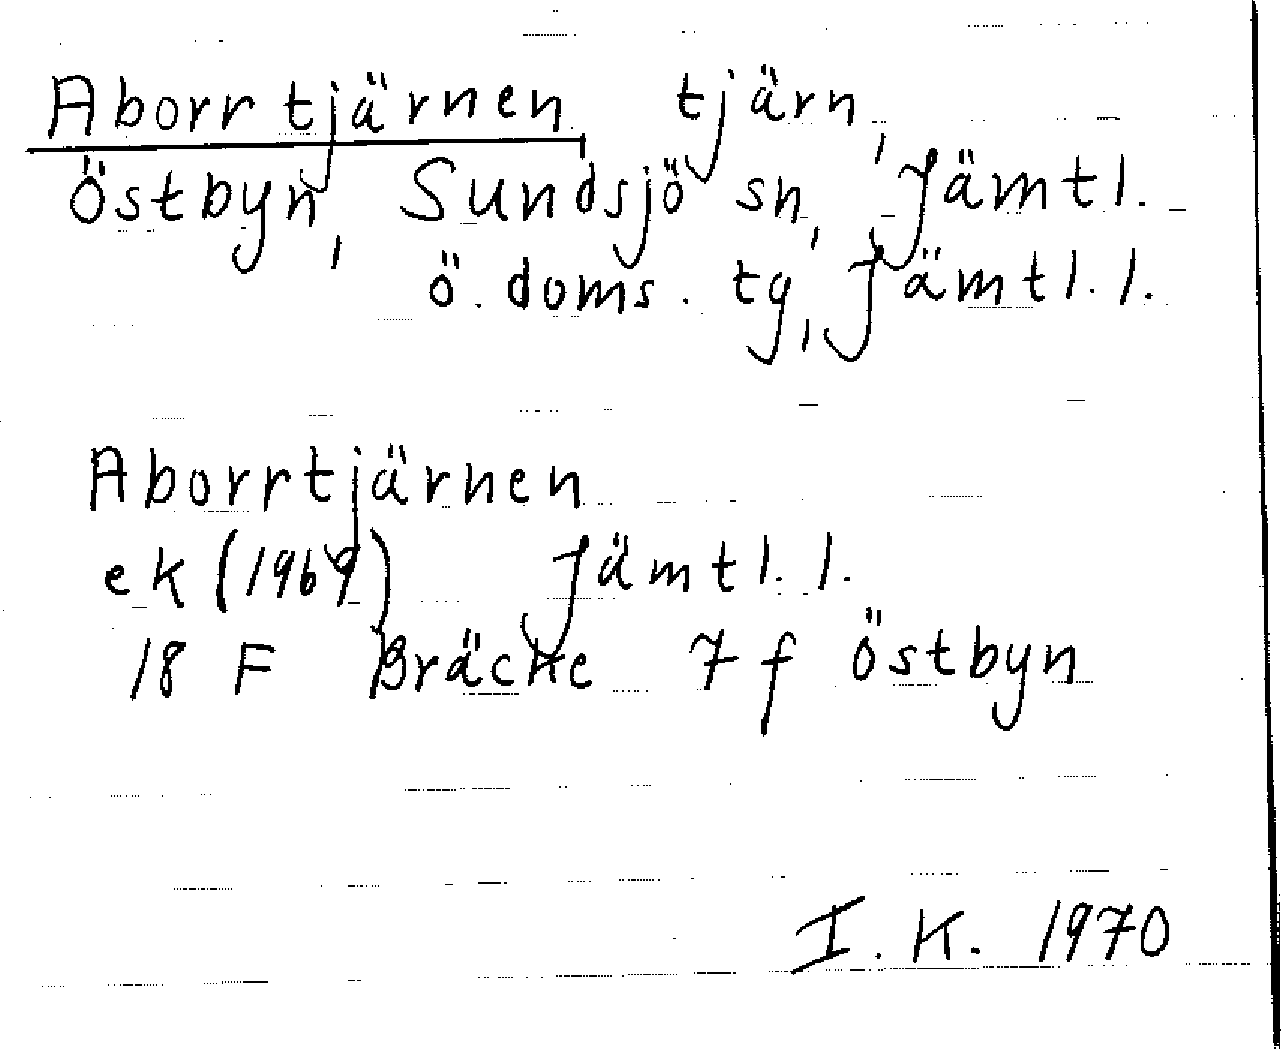 Aborrtjärnen tjärn,
Östbyn, Sundsjö sn, Jämtl.
ö. doms. tg, Jämtl. l.
Aborrtjärnen
ek (1969) Jämtl. l.
18 F Bräcke 7 f Östbyn
I. K. 1970